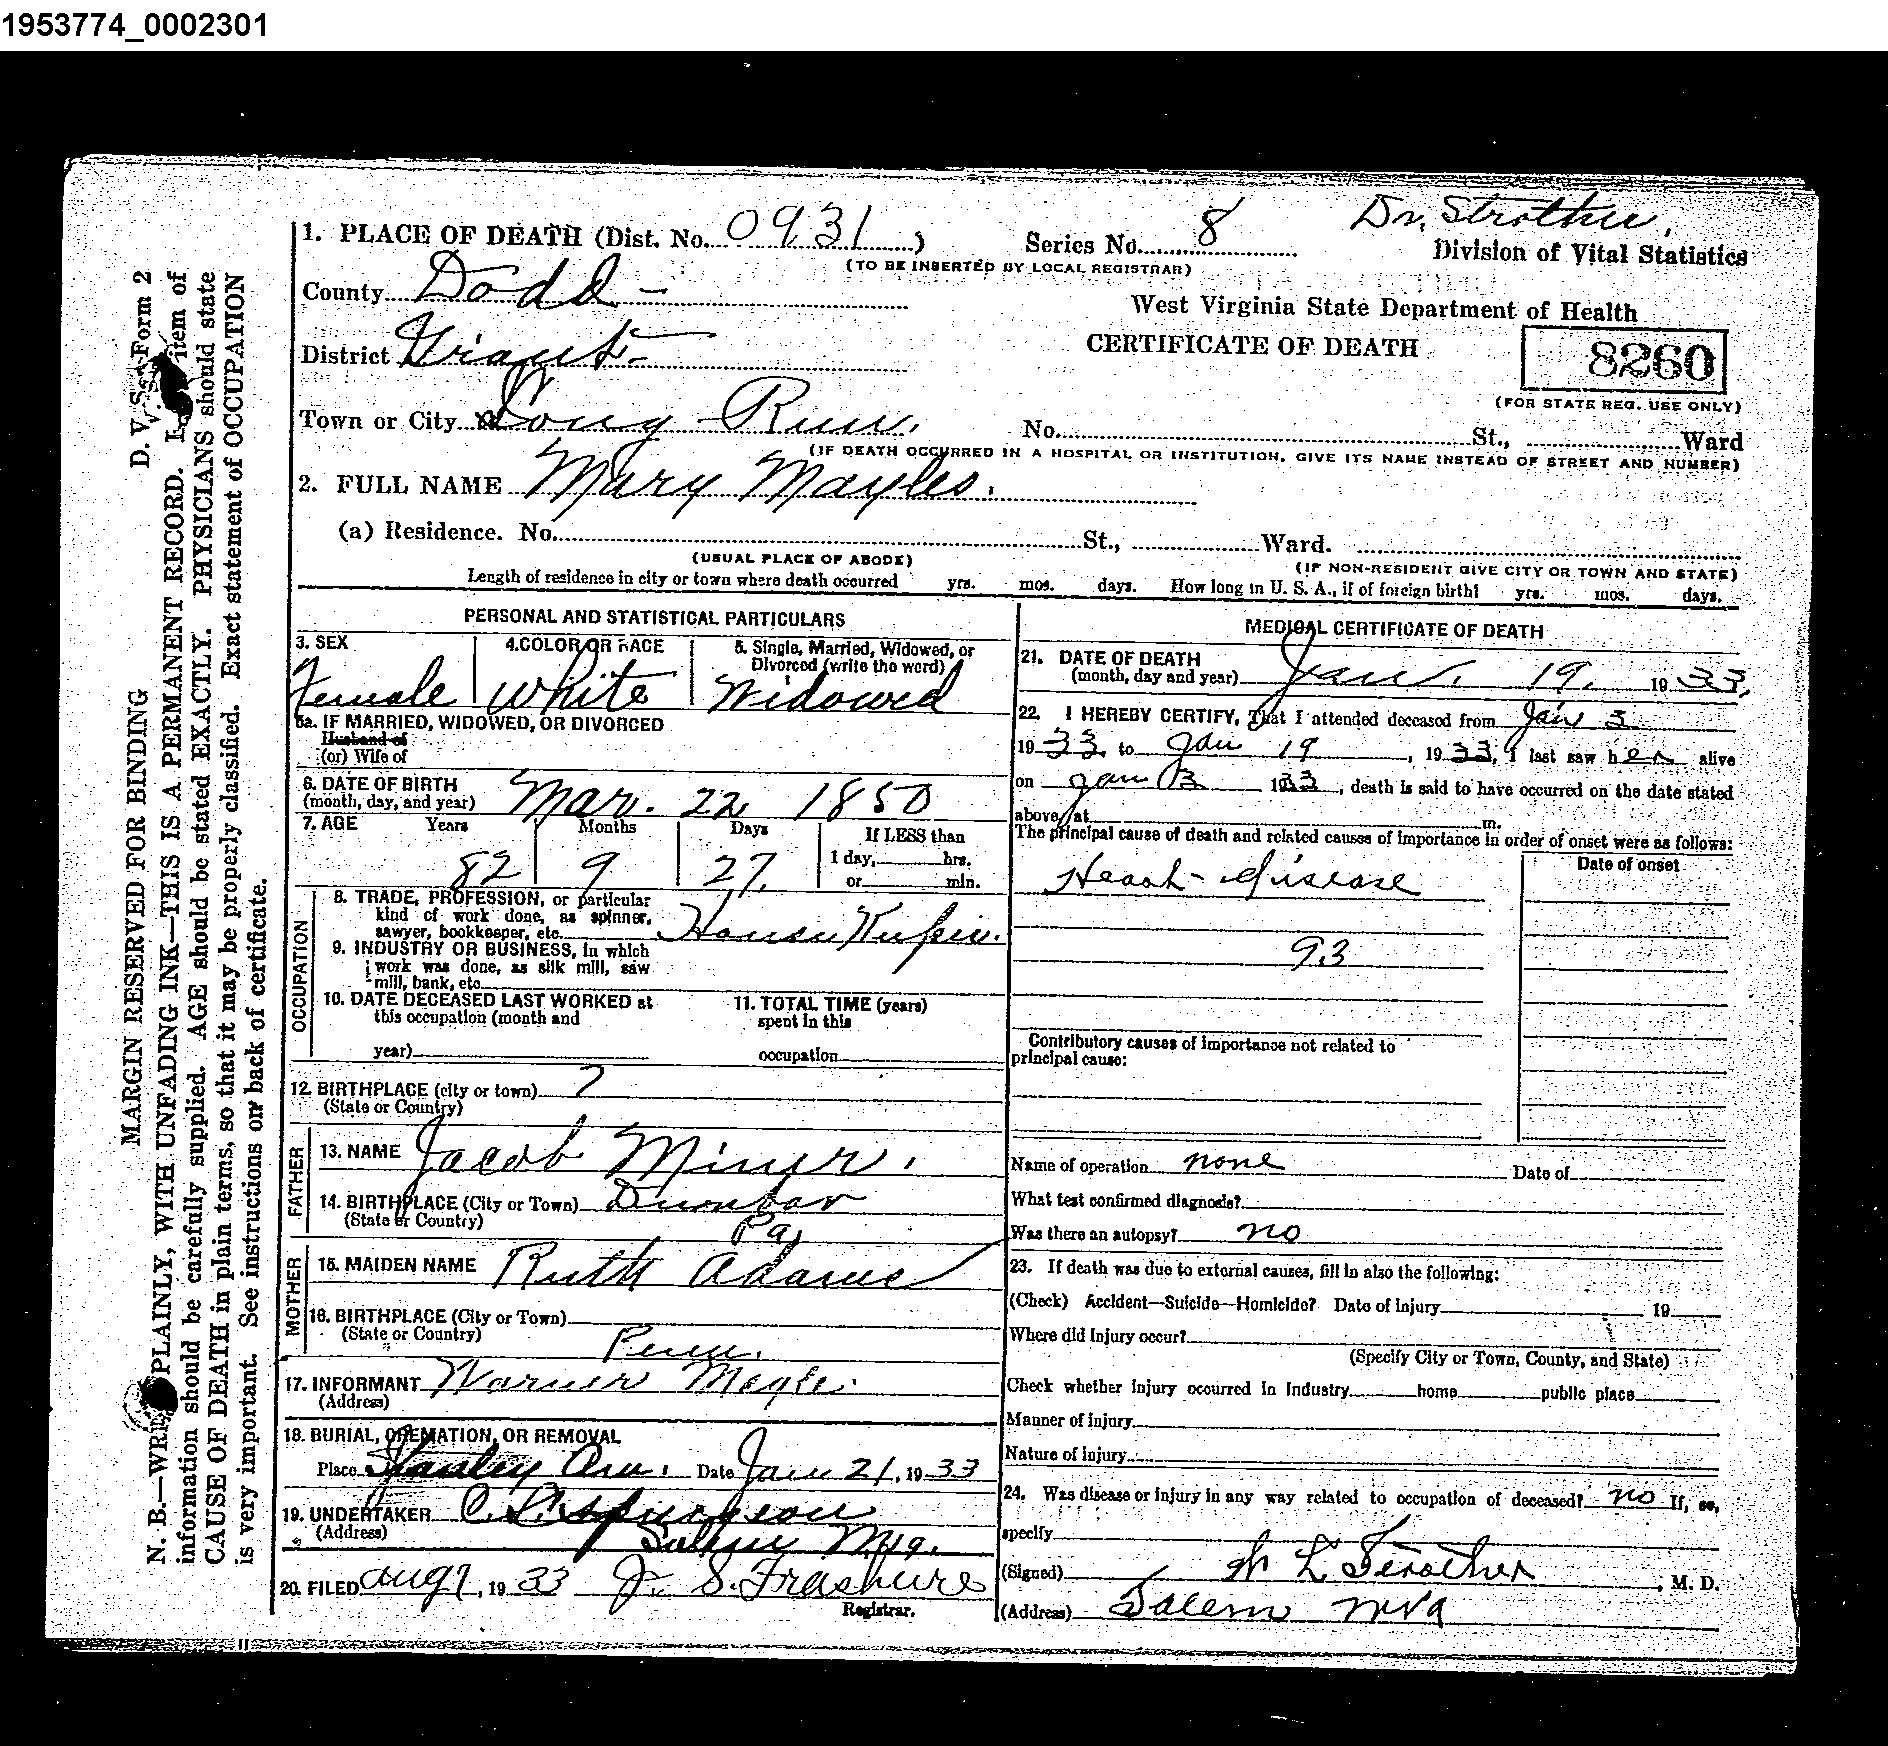 1953774_0002301
Dr. Strother,
1. PLACE OF DEATH (Dist. No. 0931) Series No. 8 Division of Vital Statistics
(TO BE INSERTED BY LOCAL REGISTRAR)
County Dodd - West Virginia State Department of Health
District Grant - CERTIFICATE OF DEATH 8260
(FOR STATE REG. USE ONLY)
Town or City Long Run. No. St., Ward
(IF DEATH OCCURRED IN A HOSPITAL OR INSTITUTION, GIVE ITS NAME INSTEAD OF STREET AND NUMBER)
2. FULL NAME Mary Mayles.
(a) Residence. No. St., Ward.
(USUAL PLACE OF ABODE) (IF NON-RESIDENT GIVE CITY OR TOWN AND STATE)
Length of residence in city or town where death occurred yrs. mos. days. How long in U. S. A., if of foreign birth? yrs. mos. days.
PERSONAL AND STATISTICAL PARTICULARS
3. SEX 4. COLOR OR RACE 5. Single, Married, Widowed, or
Divorced (write the word)
Female White Widowed
5a. IF MARRIED, WIDOWED, OR DIVORCED
Husband of
(or) Wife of
6. DATE OF BIRTH
(month, day, and year) Mar. 22 1850
7. AGE Years Months Days If LESS than
1 day, hrs.
82 9 27. or min.
OCCUPATION
8. TRADE, PROFESSION, or particular
kind of work done, as spinner,
sawyer, bookkeeper, etc.
9. INDUSTRY OR BUSINESS, in which
work was done, as silk mill, saw
mill, bank, etc.
10. DATE DECEASED LAST WORKED at 11. TOTAL TIME (years)
this occupation (month and spent in this
year) occupation
12. BIRTHPLACE (city or town) ?
(State or Country)
FATHER
13. NAME Jacob
14. BIRTHPLACE (City or Town) Dunbar
(State or Country) Pa,
MOTHER
15. MAIDEN NAME Ruth Adams
16. BIRTHPLACE (City or Town)
(State or Country) Penn.
17. INFORMANT Warner
(Address)
18. BURIAL, CREMATION, OR REMOVAL
Place Date Jan 21, 1933
19. UNDERTAKER
(Address) Salem
20. FILED Aug 7, 1933 J. S. Frashure
Registrar.
MEDICAL CERTIFICATE OF DEATH
21. DATE OF DEATH
(month, day and year) Jan. 19. 1933.
22. I HEREBY CERTIFY, That I attended deceased from Jan 3
1933 to Jan 19, 1933, I last saw her alive
on Jan 3 1933, death is said to have occurred on the date stated
above, at m.
The principal cause of death and related causes of importance in order of onset were as follows:
Date of onset
Heart disease
93
Contributory causes of importance not related to
principal cause:
Name of operation none Date of
What test confirmed diagnosis?
Was there an autopsy? no
23. If death was due to external causes, fill in also the following:
(Check) Accident—Suicide—Homicide? Date of Injury 19
Where did injury occur?
(Specify City or Town, County, and State)
Check whether injury occurred in industry home public place
Manner of injury
Nature of injury
24. Was disease or injury in any way related to occupation of deceased? no If, so,
specify
(Signed) Strother, M. D.
(Address) Salem WVa
D. V. S. Form 2
MARGIN RESERVED FOR BINDING
N. B.—WRITE PLAINLY, WITH UNFADING INK—THIS IS A PERMANENT RECORD. item of
information should be carefully supplied. AGE should be stated EXACTLY. PHYSICIANS should state
CAUSE OF DEATH in plain terms, so that it may be properly classified. Exact statement of OCCUPATION
is very important. See instructions on back of certificate.